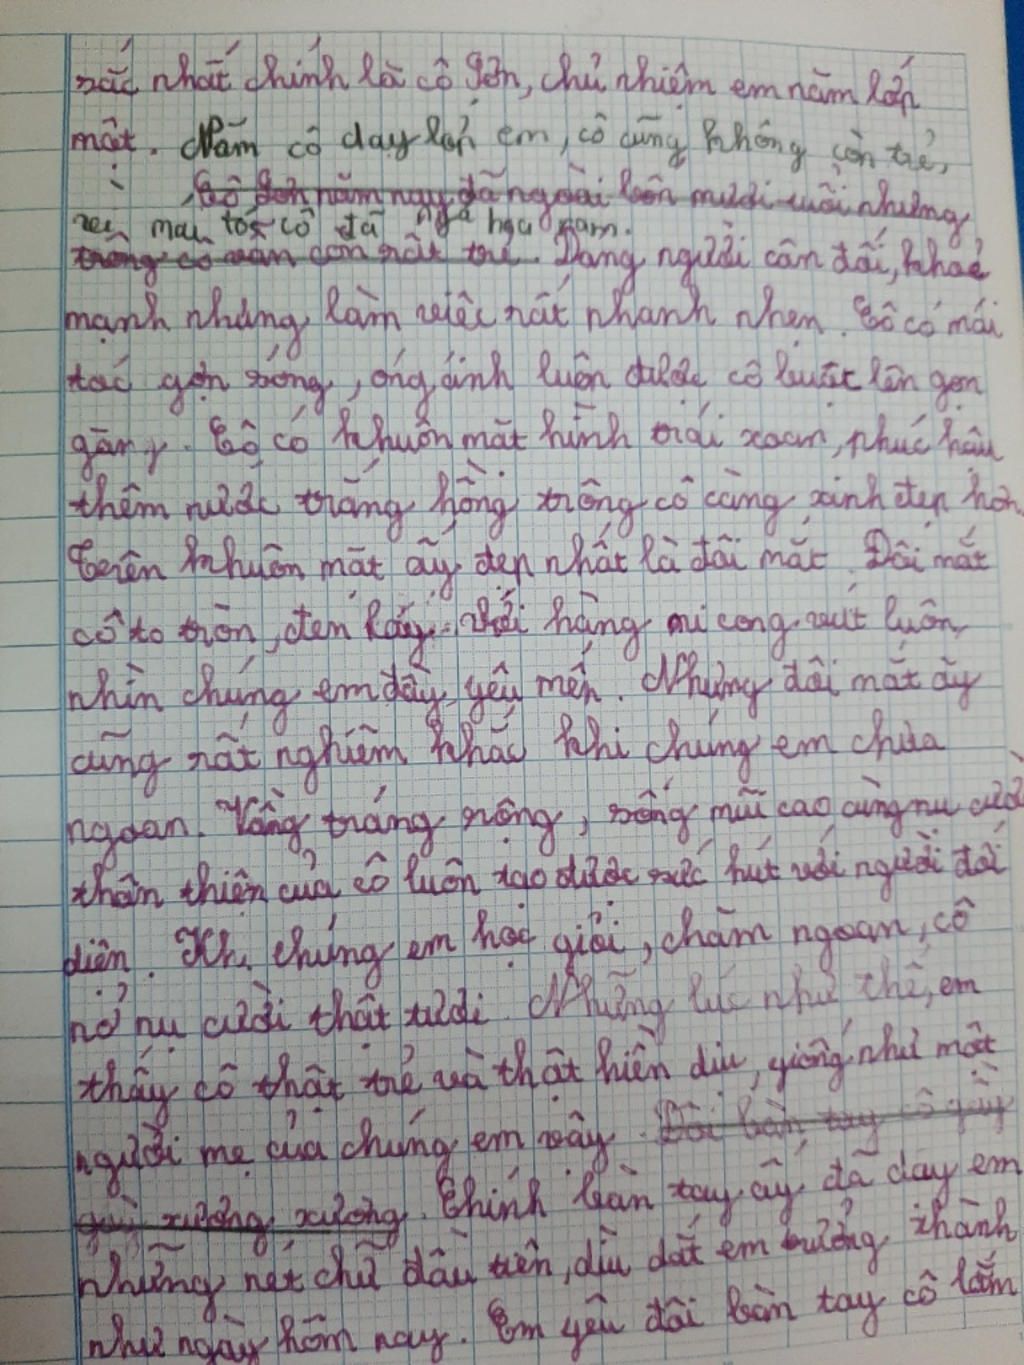 sắc nhất chính là cô Sơn, chủ nhiệm em năm lớp
một. Năm cô dạy lớp em, cô cũng không còn trẻ,
Cô Sơn năm nay đã ngoài bốn mươi tuổi nhưng
mái tóc cô đã ngả hạ
trông cô vẫn còn rất trẻ. Dáng người cân đối, khoẻ
mạnh nhưng làm việc rất nhanh nhẹn. Cô có mái
tóc gợn sóng, óng ánh luôn được cô buộc lên gọn
gàng. Cô có khuôn mặt hình trái xoan, phúc hậu
thêm nước trắng hồng trông cô càng xinh đẹp hơn.
Trên khuôn mặt ấy đẹp nhất là đôi mắt. Đôi mắt
cô to tròn, đen láy với hàng mi cong vút luôn
nhìn chúng em đầy yêu mến. Nhưng đôi mắt ấy
cũng rất nghiêm khắc khi chúng em chưa
ngoan. Vầng tráng rộng, sống mũi cao cùng nụ cười
thân thiện của cô luôn tạo được sức hút với người đối
diện. Khi chúng em học giỏi, chăm ngoan, cô
nở nụ cười thật tươi. Những lúc như thế, em
thấy cô thật trẻ và thật hiền dịu, giống như một
người mẹ của chúng em vậy. Đôi bàn tay cô gầy
gầy xương xương. Chính bàn tay ấy đã dạy em
những nét chữ đầu tiên, dìu dắt em trưởng thành
như ngày hôm nay. Em yêu đôi bàn tay cô lắm